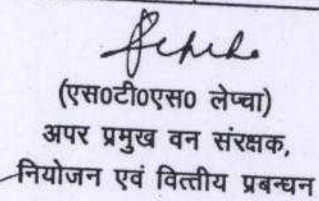 (एस0टी0एस0 लेप्चा)
अपर प्रमुख वन संरक्षक,
नियोजन एवं वित्तीय प्रबन्धन